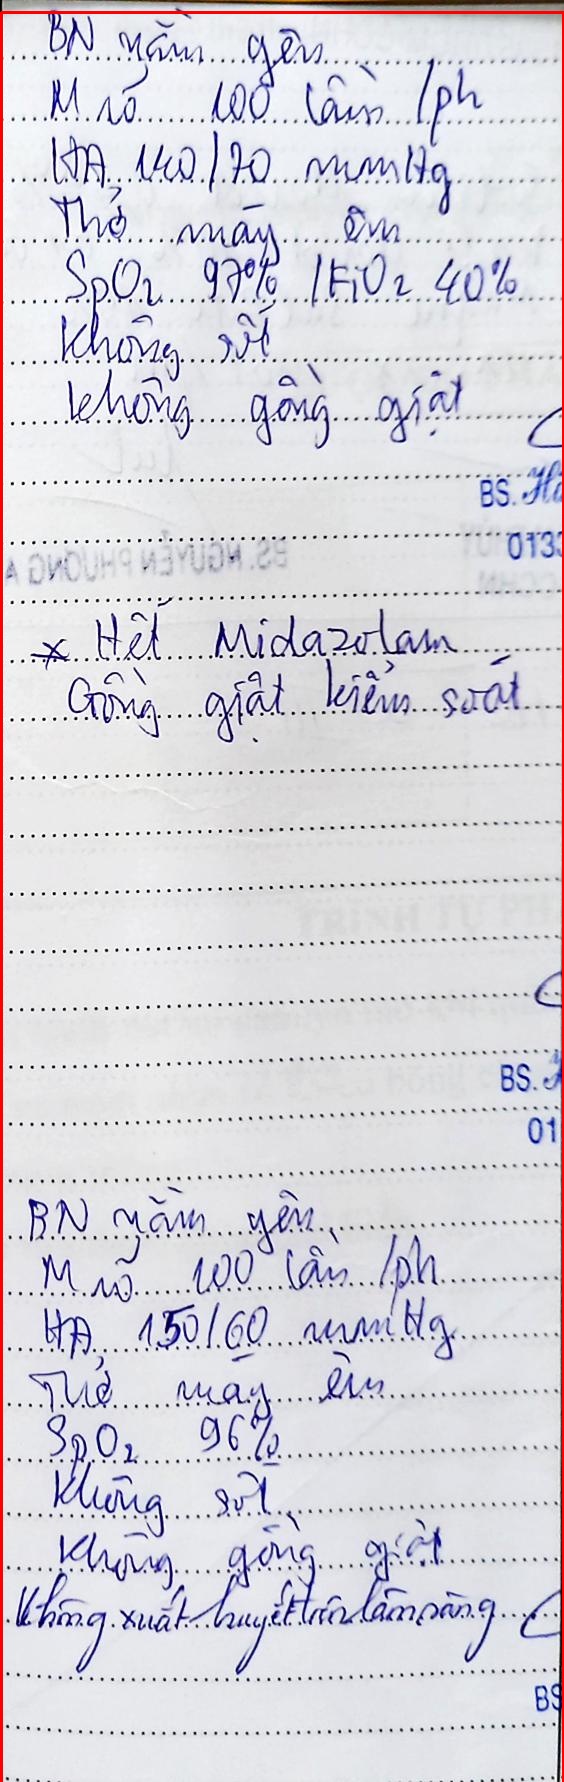 BN nằm yên
M rõ 100 lần /ph
HA 140/70 mmHg
Thở máy êm
SpO2 97% /FiO2 40%
Không sốt
Không gồng giật
BS.
0133
* Hết Midazolam
Gồng giật kiểm soát
BS.
01
BN nằm yên
M rõ 100 lần /ph
HA 150/60 mmHg
Thở máy êm
SpO2 96%
Không sốt
Không gồng giật
Không xuất huyết trên lâm sàng
BS